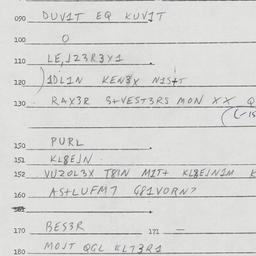 090 DUV1T EQ KUV1T
100 O
110 LE,J23R3Y1
120 )1DL1N KEN8X N1S+T
130 RAX3R S+VEST3RS MON XX Q
(-15
150 PURL
151 KL8EJN
152 VUZOL3X T8IN M1T+ KL8EJN1M K
160 AS+LUFM7 G81VORN7
170 BES3R 171 —
180 MOJT QGL KLT3R1